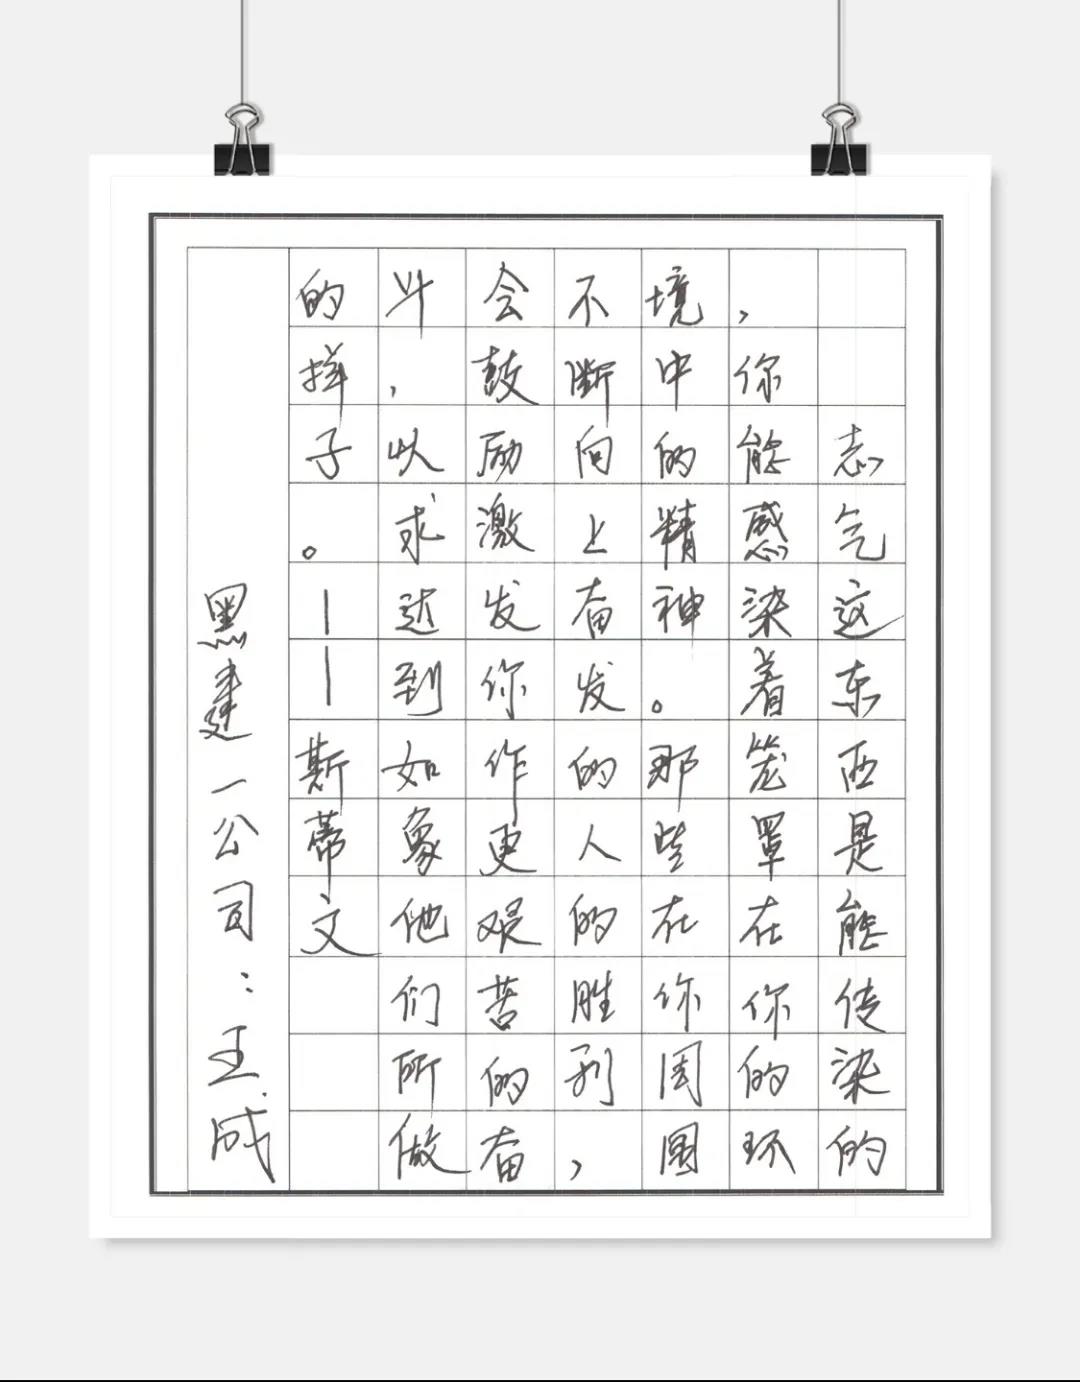 志气这东西是能传染的
，你能感染着笼罩在你的环
境中的精神。那些在你周围
不断向上奋发的人的胜利，
会鼓励激发你作更艰苦的奋
斗，以求达到如象他们所做
的样子。——斯蒂文
黑建一公司：王成